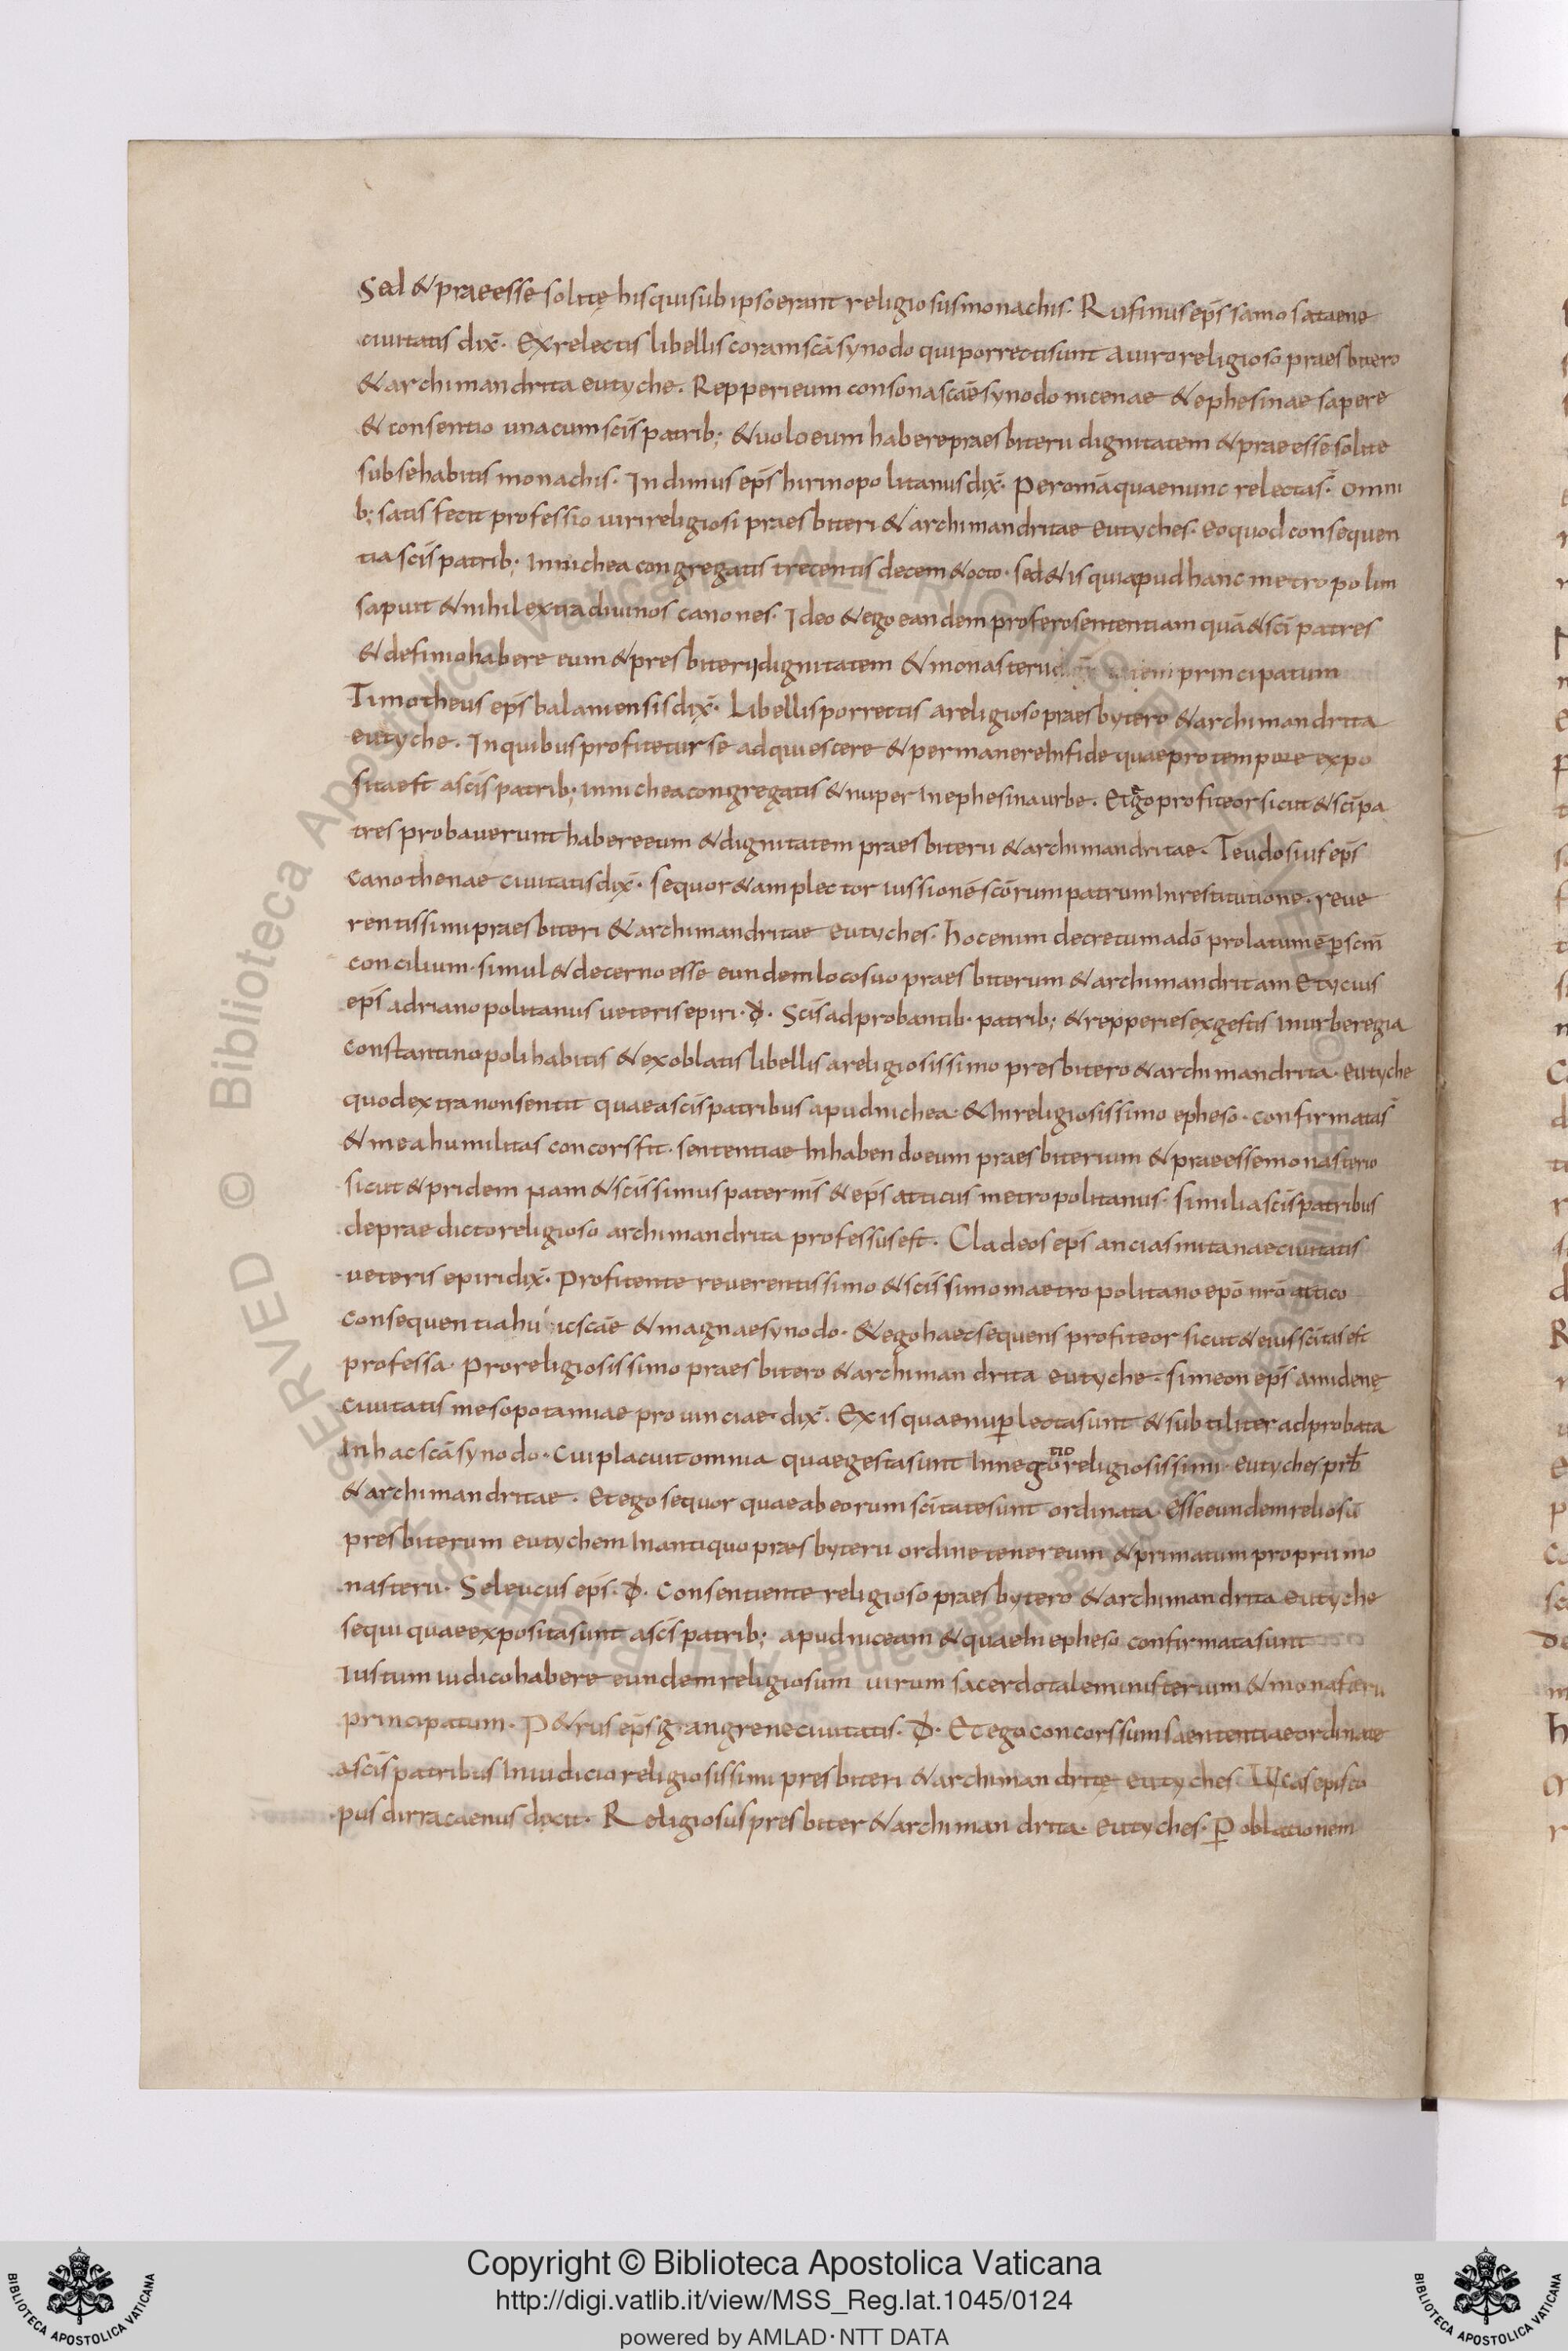 Sed & praeesse solitę his qui sub ipso erant religiosus monachis. Rufinus ep̄s samosataene
ciuitatis dix̄. Ex relectis libellis coram scā synodo qui porrecti sunt a uiro religioso praesbitero
& archimandrita eutyche. Repperi eum consona scāe synodo nicenae & ephesinae sapere
& consentio una cum scīs patrib; & uolo eum habere praesbiterii dignitatem & praeesse solite
sub se habitis monachis. Indimus ep̄s hirinopolitanus dix̄. Per om̄a quae nunc relectas̄. omni
b; satisfecit professio uiri religiosi praesbiteri & archimandritae eutyches. eo quod consequen
tia scīs patrib; In nichea congregatis trecentis decem & octo. sed & is qui apud hanc metropolim
sapuit & nihil extra diuinos canones. Ideo & ego eandem profero sententiam quā & scī patres
& definio habere eum & presbiterii dignitatem & monasterii principatum
Timotheus ep̄s balaniensis dix̄. Libellis porrectis a religioso praesbytero & archimandrita
eutyche. In quibus profitetur se adquiescere & permanere In fide quae pro tempore expo
sita est a scīs patrib; In nichea congregatis & nuper In ephesina urbe. Et ego profiteor sicut & scī pa
tres probauerunt habere eum & dignitatem praesbiterii & archimandritae. Teudosius ep̄s
canothenae ciuitatis dix̄. sequor & amplector iussionē scōrum patrum In restitutione. reue
rentissimi praesbiteri & archimandritae eutyches. hoc enim decretum a dō prolatum ē p̱ scm̄
concilium. simul & decerno esse eundem loco suo praesbiterum & archimandritam Etycius
ep̄s adrianopolitanus ueteris epiri. đ. Scīs adprobantib. patrib; & repperies ex gestis In urbe regia
constantinopoli habitis & ex oblatis libellis a religiosissimo presbitero & archimandrita. eutyche
quod extra non sentit quae a scīs patribus apud nichea. & In religiosissimo epheso. confirmatas̄
& mea humilitas concors fit. sententiae In habendo eum praesbiterium & praeesse monasterio
sicut & pridem & scīssimus pater & ep̄s atticus metropolitanus. similia scīs patribus
de praedicto religioso archimandrita professus est. Cladeos ep̄s anciasmitanae ciuitatis
ueteris epiri dix̄. Profitente reuerentissimo & scīssimo maetropolitano epō nrō attico
consequentia huicscāe & magnae synodo. & ego haec sequens profiteor sicut & eius scītas est
professa. Pro religiosissimo praesbitero & archimandrita eutyche. simeon ep̄s amidenę
ciuitatis mesopotamiae prouinciae. dix̄. Ex is quae nup̱ lecta sunt & subtiliter adprobata
In hac scā synodo. cui placuit omnia quae gesta sunt In negotio religiosissimi. eutyches prb̄
& archimandritae. Et ego sequor quae ab eorum scītate sunt ordinata. Esse eundem reliosū
presbiterum eutychem In antiquo praesbyterii ordine tenere eum & primatum proprii mo
nasterii. Seleucus ep̄s. đ. Consentiente religioso praesbytero & archimandrita eutyche
sequi quae exposita sunt a scīs patrib; apud niceam & quae In epheso confirmata sunt
Iustum iudico habere eundem religiosum uirum sacerdotale ministerium & monasterii
principatum. P&rus ep̄s gangrene ciuitatis. đ. Et ego concors sum saententiae ordinate
a scīs patribus In iudicio religiosissimi presbiteri & archimandritę eutyches Lucas episco
pus dirracaenus dixit. Religiosus presbiter & archimandrita. eutyches. P̱ oblationem
Copyright © Biblioteca Apostolica Vaticana
http://digi.vatlib.it/view/MSS_Reg.lat.1045/0124
powered by AMLAD·NTT DATA
BIBLIOTECA APOSTOLICA VATICANA
BIBLIOTECA APOSTOLICA VATICANA